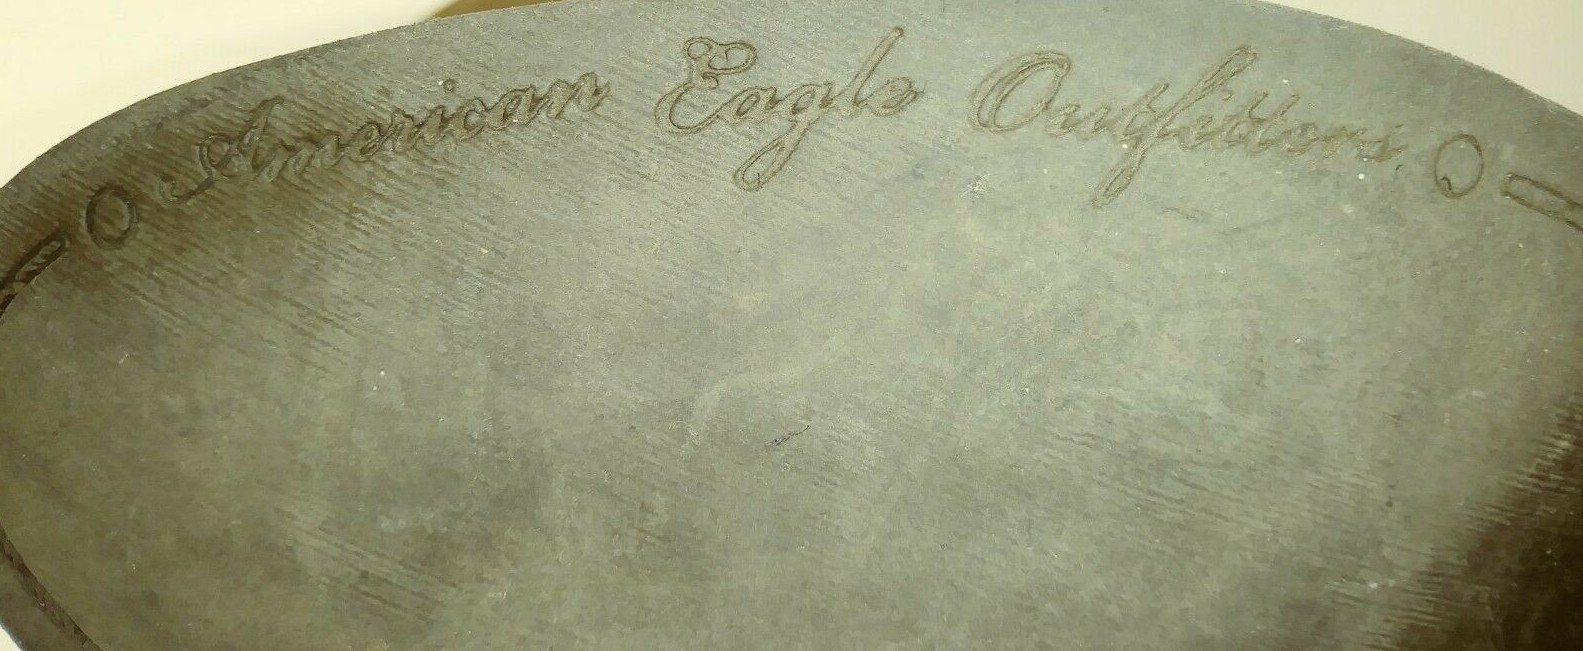 American Eagle Outfitters